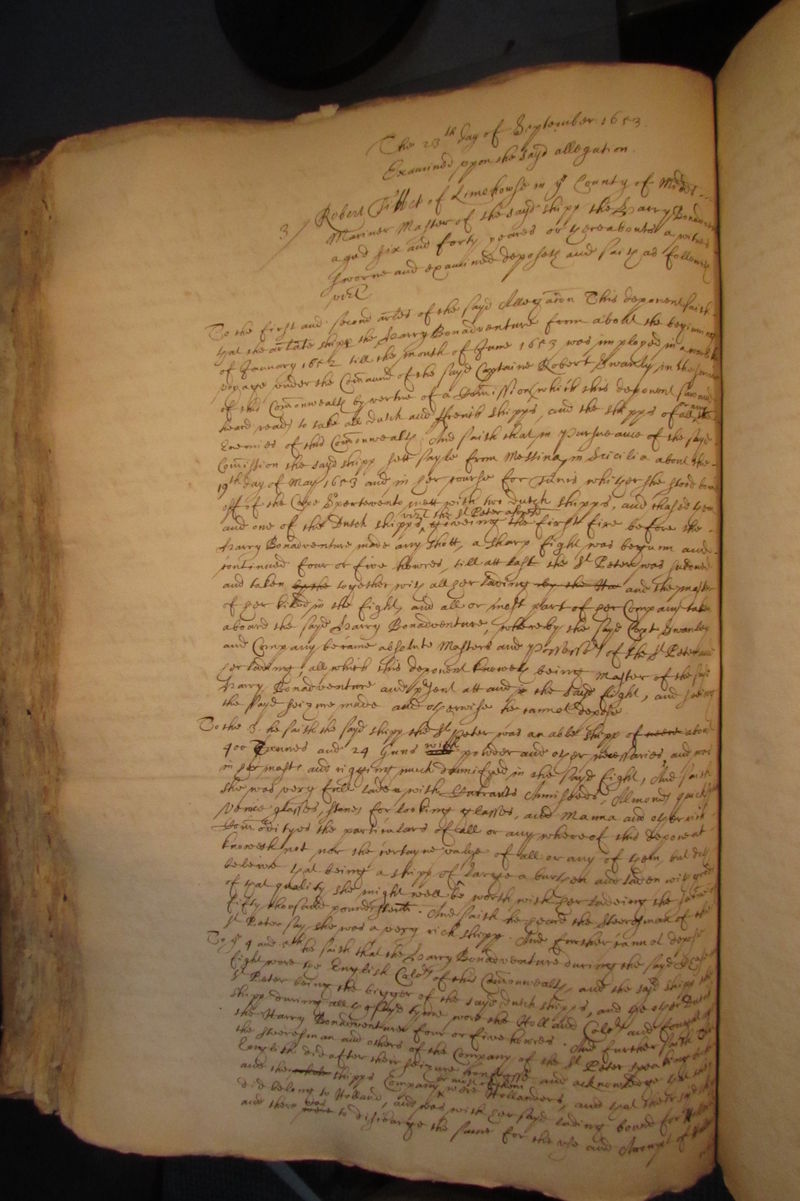 The 23th day of September 1653.
Examined upon the sayd allegation.
3/ Robert of Limehowse in ye County of Middx
Mariner Master of the sayd shipp the Harry Bonadventure
aged six and forty yeares or thereabouts a witnes
sworne and examined deposeth and saith as followeth
vizt
To the first and second arles of the sayd Allegacon This deponent saith
that the arlate shipp the Harry Bonadventure from about the beginning
of January 1652 till the month of June 1653 was imployed in a
voyage under the Comaund of the sayd Captaine Robert Swanly in the service
of this Comonwealth by vertue of a Comission (which this deponent saw and
heard read) to take all dutch and ffrench shipps, and the shipps of all other
Enemies of this Comonwealth, And saith that in pursueance of the sayd
Comission the sayd shipp sett sayle from Messina in Scicilie about the
19th day of May 1653 and in her course for Tunis whither she stood bound
off of the Cape Spertevento mett with two dutch shipps, and chased them
and one of the dutch shipps, vizt the St Peter aforesd giveing the first fire before the
Harry Bonadventure made any shott, a sharp fight was begunn and
continued four or five howres, till att last the St Peter was subdued
and taken by the together with all her lading by the Har and the master
of her killed in the fight, and all or most part of her Company taken
aboard the sayd Harry Bonadventure, whereby the sayd Capt Swanley
and Company became absolute Masters and Possessors of the St Peter and
her lading, all which this deponent knoweth being Master of the sayd
Harry Bonadventure and present att and in the sayd fight, and seeing
the sayd seizure made and otherwise he cannot depose
To the 3. he saith the sayd shipp the St Peter was an able shipp of were about
400 Tonnes and 24 Guns with powder and other necessaries, and was
in her masts and rigging much damnifyed in the sayd fight, And saith
she was very full laden with Annisseeds, Almonds
Venice glasses, stones for looking glasses, and Manna and other rich
Comodityes the particulars of all or any whereof this deponent
knoweth not nor the certayne value of all or any of them but doth
beleive that being a shipp of large a burthen and laden with goods
of that quality she might well be worth with her ladeing the summe of
fifty thousand pounds sterli. And saith he heard the Steersman of the
St Peter say she was a very rich shipp. And further cannot depose
To ye 4 and 5th he saith that the Harry Bonadventure during the sayd
fight wore the English Colors of this Comonwealth, and the sayd shipp the
St Peter being the bigger of the sayd dutch shipps, and the other dutch
shipp during all the sayd tyme wore the Holland Colors and fought
the Harry Bonadventure four or five howres. And further saith that
the steersman and others of the Company of the St Peter speaking
English did after their seizure confesse and acknowledge that they
and the whole shipps Company or most of them were Hollanders, and that the sayd shipp
did belong to Holland, and was with her sayd lading bound for
and there was were to discharge the same for the use and Accompt of